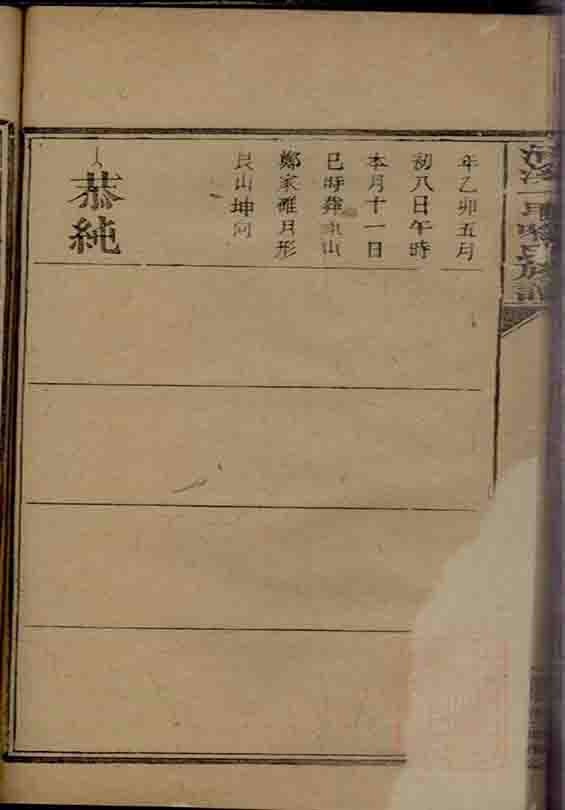 年乙卯五月
初八日午時
本月十一日
巳時葬東山
鄭家碓月形
艮山坤向
恭純
氏族譜